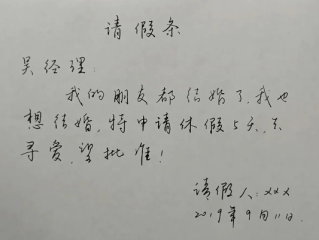 请假条
吴经理:
我的朋友都结婚了,我也
想结婚,特申请休假5天,去
寻爱,望批准!
请假人:xxx
2019年9月11日